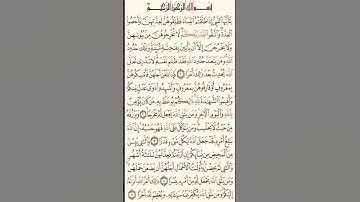 بِسْمِ اللَّهِ الرَّحْمَٰنِ الرَّحِيمِ
يَٰٓأَيُّهَا النَّبِيُّ إِذَا طَلَّقْتُمُ النِّسَآءَ فَطَلِّقُوهُنَّ لِعِدَّتِهِنَّ وَأَحْصُوا
الْعِدَّةَ وَاتَّقُوا اللَّهَ رَبَّكُمْ لَا تُخْرِجُوهُنَّ مِنۢ بُيُوتِهِنَّ
وَلَا يَخْرُجْنَ إِلَّآ أَن يَأْتِينَ بِفَٰحِشَةٍ مُّبَيِّنَةٍ وَتِلْكَ حُدُودُ
اللَّهِ وَمَن يَتَعَدَّ حُدُودَ اللَّهِ فَقَدْ ظَلَمَ نَفْسَهُ لَا تَدْرِي لَعَلَّ
اللَّهَ يُحْدِثُ بَعْدَ ذَٰلِكَ أَمْرًا ١ فَإِذَا بَلَغْنَ أَجَلَهُنَّ فَأَمْسِكُوهُنَّ
بِمَعْرُوفٍ أَوْ فَارِقُوهُنَّ بِمَعْرُوفٍ وَأَشْهِدُوا ذَوَيْ عَدْلٍ مِّنكُمْ
وَأَقِيمُوا الشَّهَٰدَةَ لِلَّهِ ذَٰلِكُمْ يُوعَظُ بِهِ مَن كَانَ يُؤْمِنُ
بِاللَّهِ وَالْيَوْمِ الْآخِرِ وَمَن يَتَّقِ اللَّهَ يَجْعَل لَّهُ مَخْرَجًا ٢ وَيَرْزُقْهُ
مِنْ حَيْثُ لَا يَحْتَسِبُ وَمَن يَتَوَكَّلْ عَلَى اللَّهِ فَهُوَ حَسْبُهُ إِنَّ
اللَّهَ بَٰلِغُ أَمْرِهِ قَدْ جَعَلَ اللَّهُ لِكُلِّ شَيْءٍ قَدْرًا ٣ وَالَّٰٓـِٔي يَئِسْنَ
مِنَ الْمَحِيضِ مِن نِّسَآئِكُمْ إِنِ ارْتَبْتُمْ فَعِدَّتُهُنَّ ثَلَٰثَةُ أَشْهُرٍ
وَالَّٰٓـِٔي لَمْ يَحِضْنَ وَأُولَٰتُ الْأَحْمَالِ أَجَلُهُنَّ أَن يَضَعْنَ حَمْلَهُنَّ
وَمَن يَتَّقِ اللَّهَ يَجْعَل لَّهُ مِنْ أَمْرِهِ يُسْرًا ٤ ذَٰلِكَ أَمْرُ اللَّهِ أَنزَلَهُ
إِلَيْكُمْ وَمَن يَتَّقِ اللَّهَ يُكَفِّرْ عَنْهُ سَيِّـَٔاتِهِ وَيُعْظِمْ لَهُ أَجْرًا ٥